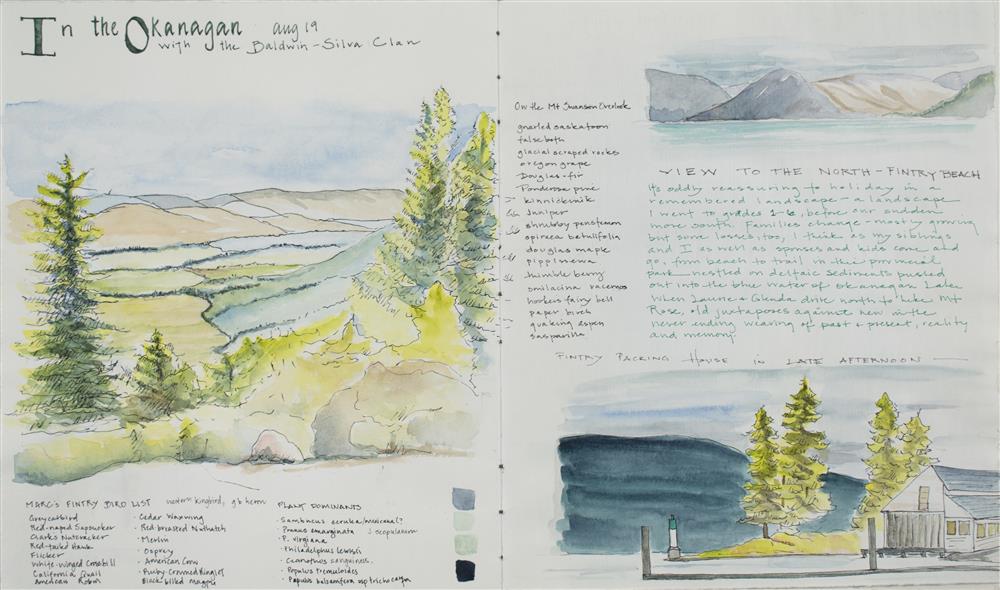 In the Okanagan aug 19
with the Baldwin-Silva Clan
MARC'S FINTRY BIRD LIST western kingbird, gb heron
Grey catbird
Red-naped Sapsucker
Clarks Nutcracker
Red-tailed Hawk
Flicker
White-winged Crossbill
California Quail
American Robin
· Cedar Waxwing
· Red-breasted Nuthatch
· Merlin
· Osprey
· American Crow
· Ruby-Crowned Kinglet
Black billed magpie
PLANT DOMINANTS
· Sambucus cerulea/mexicana?
· Prunus emarginata J scopulorum
· P. virginiana
· Philadelphus lewisii
· Ceanothus sanguineus
· Populus tremuloides
· Populus balsamifera ssp trichocarpa
On the Mt Swanson Overlook
gnarled saskatoon
falsebox
glacial scraped rocks
oregon grape
Douglas-fir
Ponderosa pine
kinnickinnik
juniper
shrubby penstemon
spiraea betulifolia
douglas maple
pippsissewa
thimble berry
smilacina racemosa
hookers fairy bell
paper birch
quaking aspen
sasparilla
VIEW TO THE NORTH - FINTRY BEACH
Its oddly reassuring to holiday in a
remembered landscape - a landscape
I went to grades 1-6, before our sudden
move south. Families change - mostly growing
but some losses, too, I think as my siblings
and I as well as spouses and kids come and
go, from beach to trail in this provincial
park nestled on deltaic sediments pushed
out into the blue water of Okanagan Lake.
When Laurie & Glenda drive north to hike Mt
Rose, old juxtaposes against new in the
never ending weaving of past & present, reality
and memory
FINTRY PACKING HOUSE IN LATE AFTERNOON